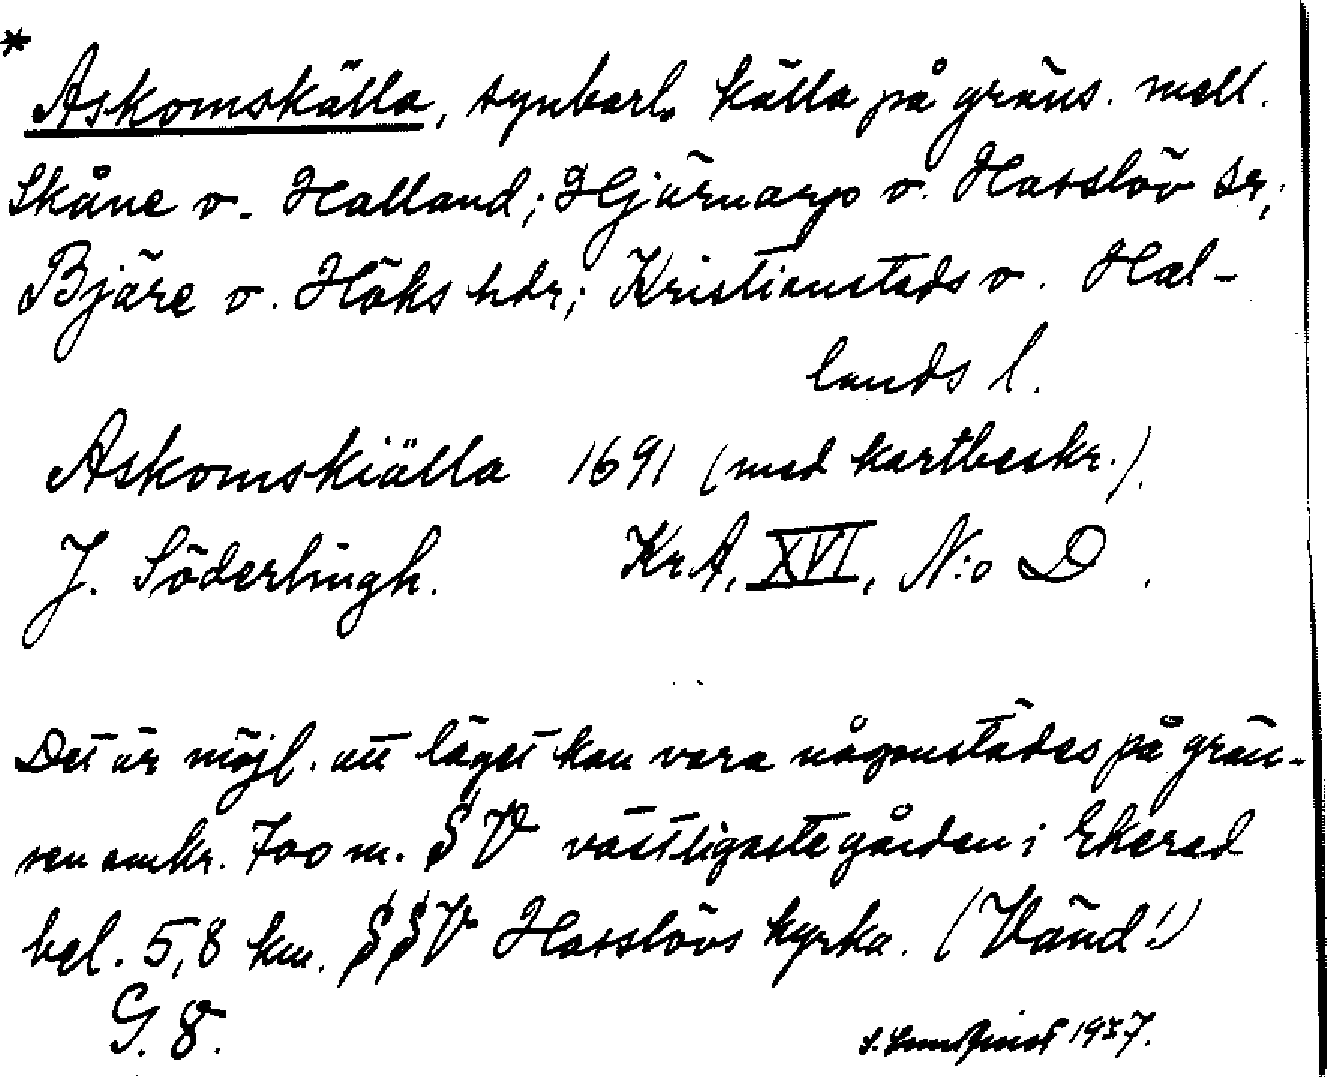 * Askomskälla, synbarl. källa på gräns. mell.
Skåne o. Halland; Hjärnarps o. Hasslöv sr;
Bjäre o. Höks hdr; Kristianstads o. Hal-
lands l.
Askomskiälla 1691 (med kartbeskr.).
J. Söderlingh. KrA, XVI, N:o D.
Det är möjl. att läget kan vara någonstädes på grän-
sen omkr. 700 m. SV västligaste gården i Ekered
bel. 5,8 km. SSV Hasslövs kyrka. (Vänd!)
G. 8. 1937.